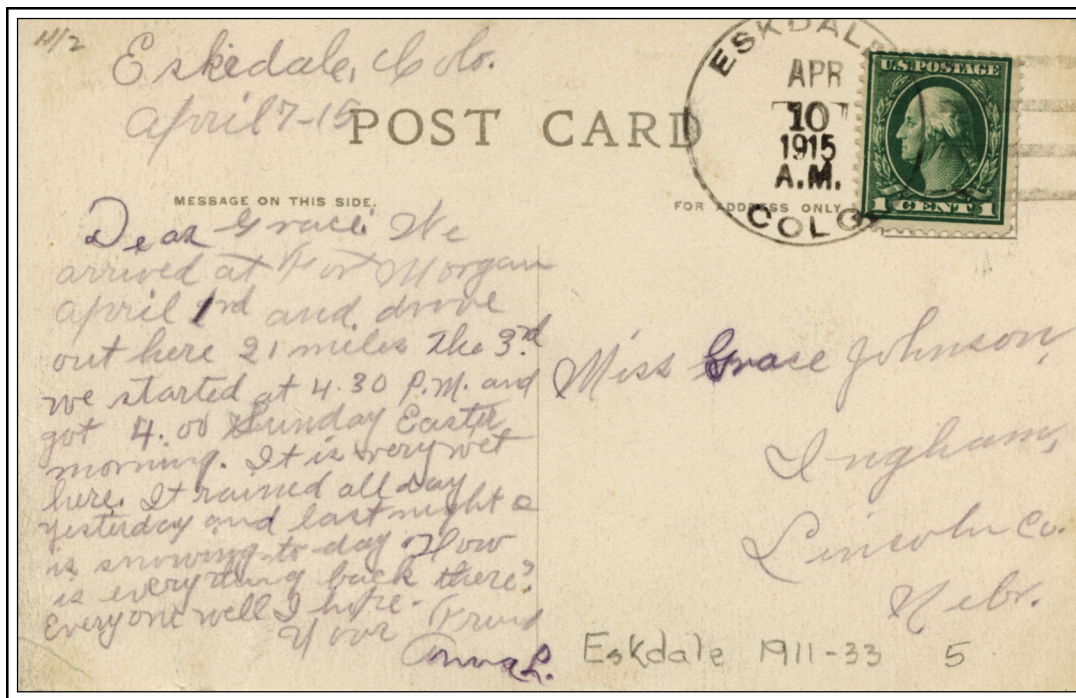 Eskedale, Colo.
April 7-15
POST CARD
ESKDALE
APR
10
1915
A.M.
COLO
U.S. POSTAGE
1 CENT 1
MESSAGE ON THIS SIDE.
FOR ADDRESS ONLY
Dear Grace: We
arrived at Fort Morgan
April 1rd and drove
out here 21 miles the 3rd
we started at 4.30 P.M. and
got 4.00 Sunday Easter
morning. It is very wet
here. It rained all day
yesterday and last night &
is snowing to-day. How
is everything back there?
Everyone well I hope-
Your Friend
Anna L.
Miss Grace Johnson,
Ingham,
Lincoln Co.
Nebr.
Eskdale 1911-33 5